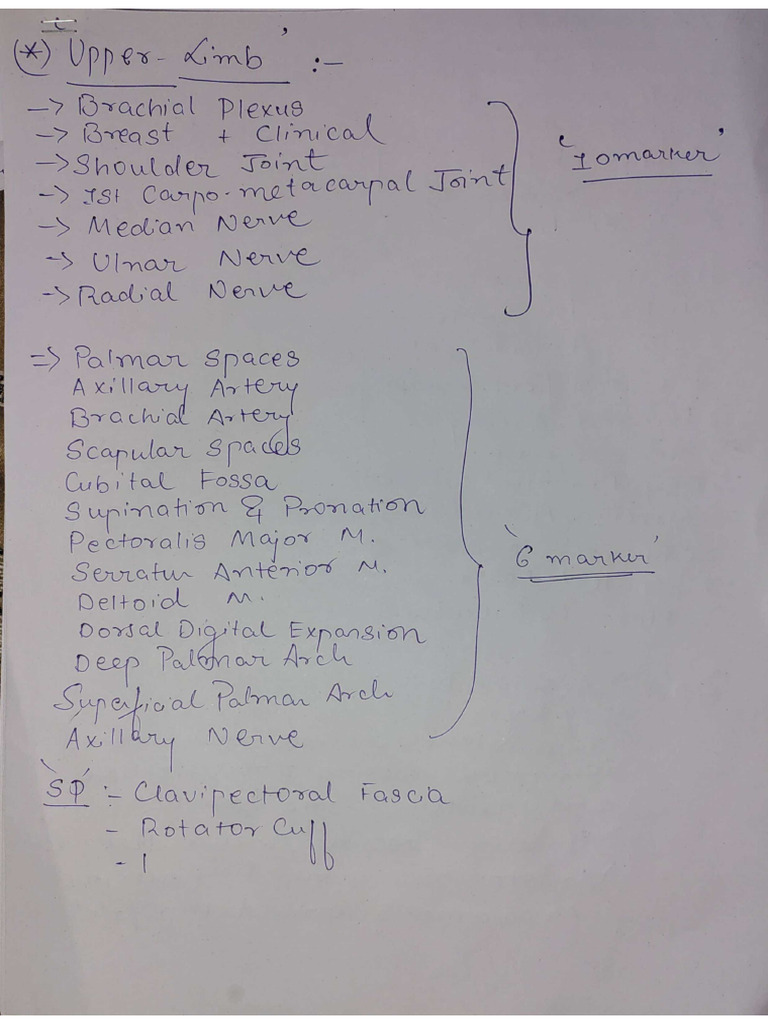 (*) Upper-Limb' :-
-> Brachial Plexus
-> Breast + Clinical
-> Shoulder Joint
-> 1st Carpo-metacarpal Joint
-> Median Nerve
-> Ulnar Nerve
-> Radial Nerve
'10marker'
=> Palmar Spaces
Axillary Artery
Brachial Artery
Scapular Spaces
Cubital Fossa
Supination & Pronation
Pectoralis Major M.
Serratur Anterior M.
Deltoid M.
Dorsal Digital Expansion
Deep Palmar Arch
Superficial Palmar Arch
Axillary Nerve
'6 marker'
:- Clavipectoral Fascia
- Rotator Cuff
-